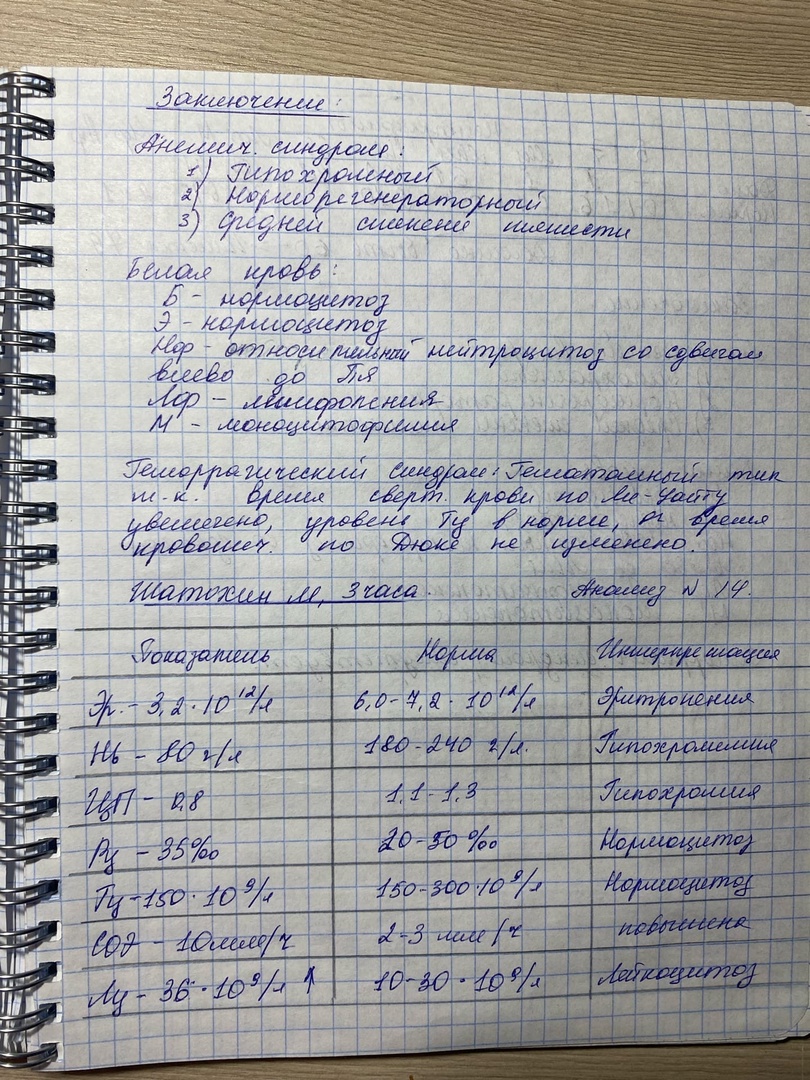 Заключение:
Анемич. синдром:
1) Гипохромный
2) Норморегенераторный
3) Средней степени тяжести
Белая кровь:
Б - нормоцитоз
Э - нормоцитоз
Нф - относительный нейтроцитоз со сдвигом
влево до Пя
Лф - лимфопения
М - моноцитофилия
Геморрагический синдром: Гематомный тип
т.к. время сверт. крови по Ли-Уайту
увеличено, уровень Тц в норме, время
кровотеч. по Дюке не изменено.
Шатохин М, 3 часа. Анализ N 14.
Показатель Норма Интерпретация
Эр. - 3,2 · 10¹²/л 6,0-7,2 · 10¹²/л Эритропения
Hb - 80 г/л 180-240 г/л. Гипохромемия
ЦП - 0,8 1,1-1,3 Гипохромия
Рц - 35‰ 20-50‰ Нормоцитоз
Тц - 150 · 10⁹/л 150-300·10⁹/л Нормоцитоз
СОЭ - 10мм/ч 2-3 мм/ч повышена
Лц - 36 · 10⁹/л ↑ 10-30 · 10⁹/л Лейкоцитоз